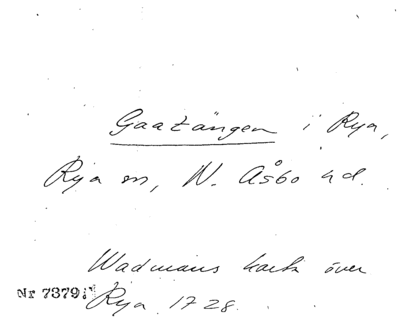 Gaatängen i Rya,
Rya sn, N. Åsbo hd.
Wadmans karta över
Nr 7379:
Rya 1728.